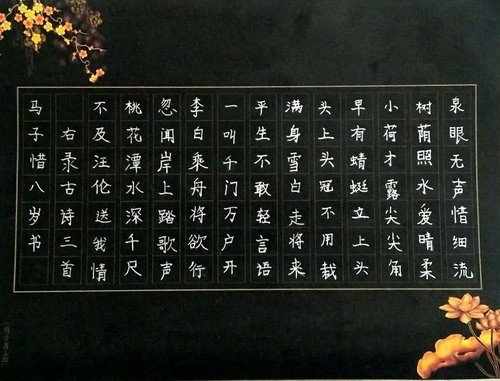 泉眼无声惜细流
树荫照水爱晴柔
小荷才露尖尖角
早有蜻蜓立上头
头上头冠不用裁
满身雪白走将来
平生不敢轻言语
一叫千门万户开
李白乘舟将欲行
忽闻岸上踏歌声
桃花潭水深千尺
不及汪伦送我情
右录古诗三首
马子惜八岁书